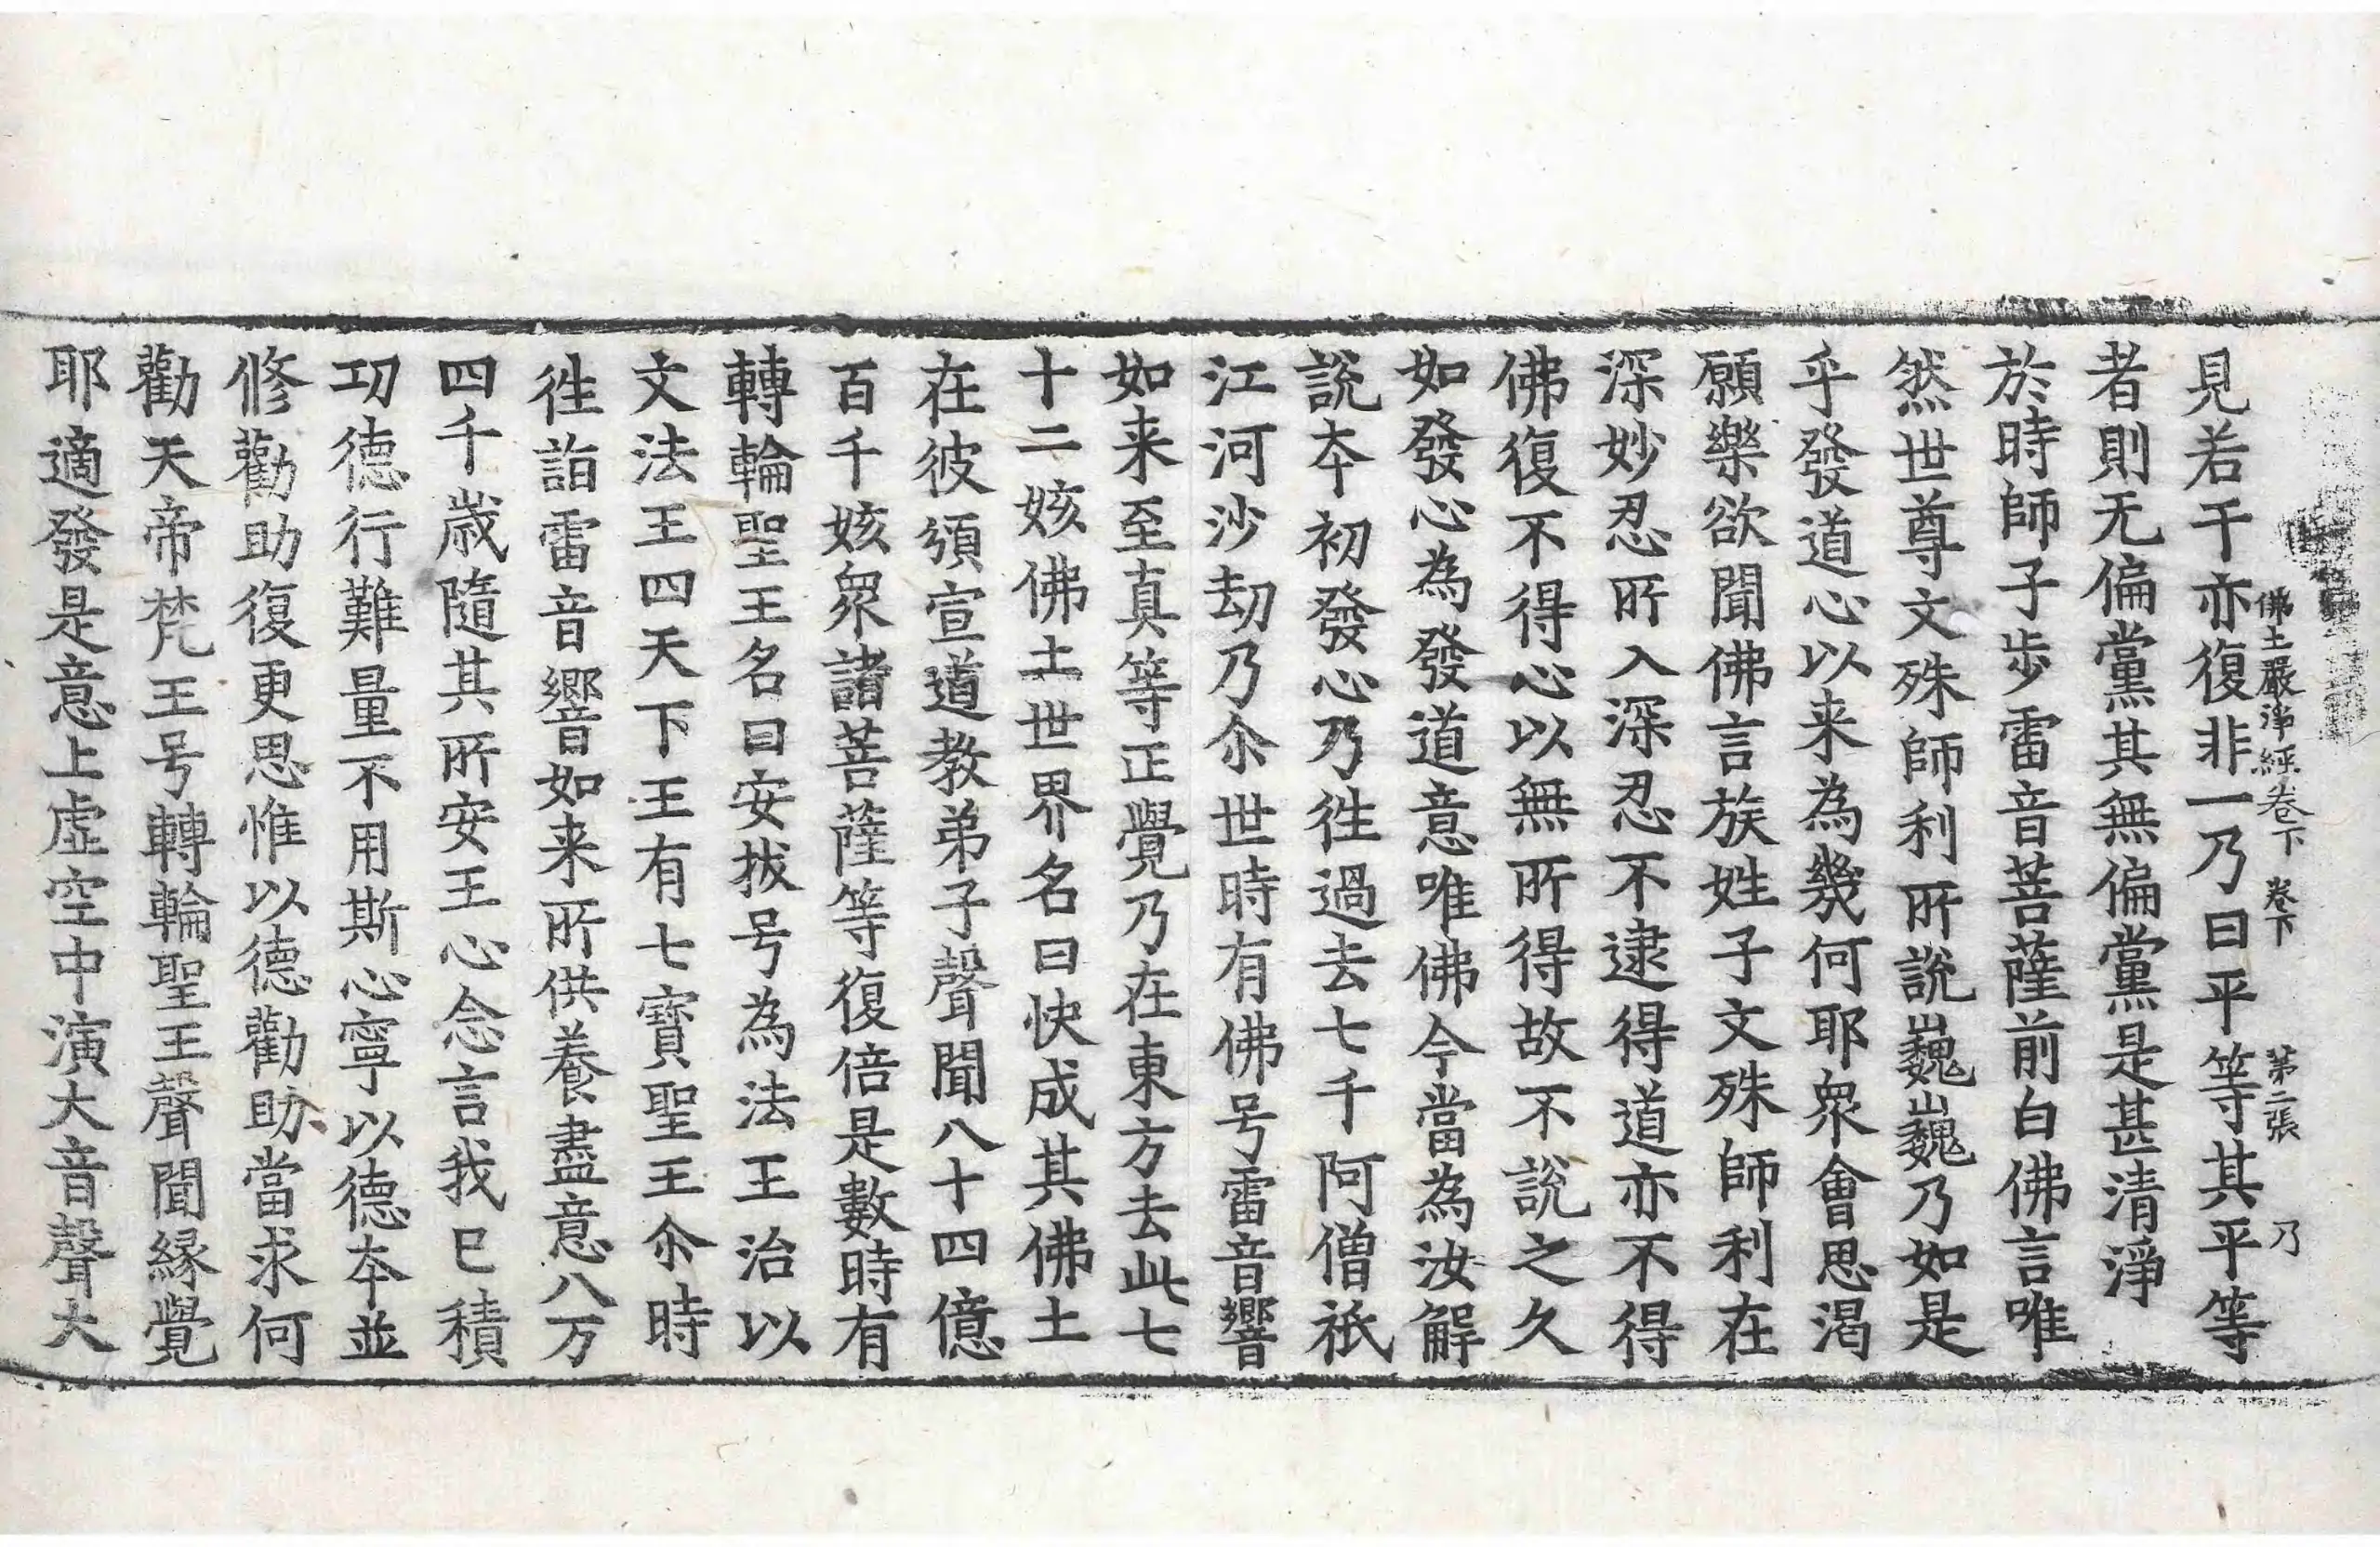 佛土嚴淨經卷下 卷下 第二張 乃
見若干亦復非一乃曰平等其平等
者則无偏黨其無偏黨是甚清淨
於時師子步雷音菩薩前白佛言唯
然世尊文殊師利所說巍巍乃如是
乎發道心以来為幾何耶衆會思渴
願樂欲聞佛言族姓子文殊師利在
深妙忍所入深忍不逮得道亦不得
佛復不得心以無所得故不說之久
如發心為發道意唯佛今當為汝解
說夲初發心乃徃過去七千阿僧祇
江河沙劫乃尒世時有佛号雷音響
如来至真等正覺乃在東方去此七
十二姟佛土世界名曰快成其佛土
在彼頒宣道教弟子聲聞八十四億
百千姟衆諸菩薩等復倍是數時有
轉輪聖王名曰安拔号為法王治以
文法王四天下王有七寶聖王尒時
徃詣雷音響如来所供養盡意八万
四千歲隨其所安王心念言我已積
功德行難量不用斯心寧以德夲並
修勸助復更思惟以德勸助當求何
勸天帝梵王号轉輪聖王聲聞緣覺
耶適發是意上虛空中演大音聲大